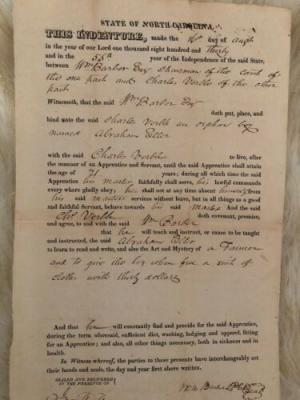 STATE OF NORTH-CAROLINA,
THIS INDENTURE, made the day of Augt
in the year of our Lord one thousand eight hundred and thirty
and in the 55th year of the Independence of the said State,
between Wm Barbor Esq chairman of the court of
the one part and Charles of the other
part
Witnesseth, that the said Wm Barbor Esq
doth put, place, and
bind unto the said Charles an orphan boy
named Abraham
with the said Charles to live, after
the manner of an Apprentice and Servant, until the said Apprentice shall attain
the age of 21 years; during all which time the said
Apprentice his master faithfully shall serve, his lawful commands
every where gladly obey; he shall not at any time absent himself from
his said master service without leave, but in all things as a good
and faithful Servant, behave towards his said master And the said
Chs doth covenant, promise,
and agree, to and with the said Wm Barbor
that he will teach and instruct, or cause to be taught
and instructed, the said Abraham
to learn to read and write, and also the Art and Mystery of a Farmer
and to give the boy when free a suit of
clothes worth thirty dollars
And that he will constantly find and provide for the said Apprentice,
during the term aforesaid, sufficient diet, washing, lodging and apparel, fitting
for an Apprentice; and also, all other things necessary, both in sickness and in
health.
In Witness whereof, the parties to these presents have interchangeably set
their hands and seals, the day and year first above written.
SEALED AND DELIVERED
IN THE PRESENCE OF